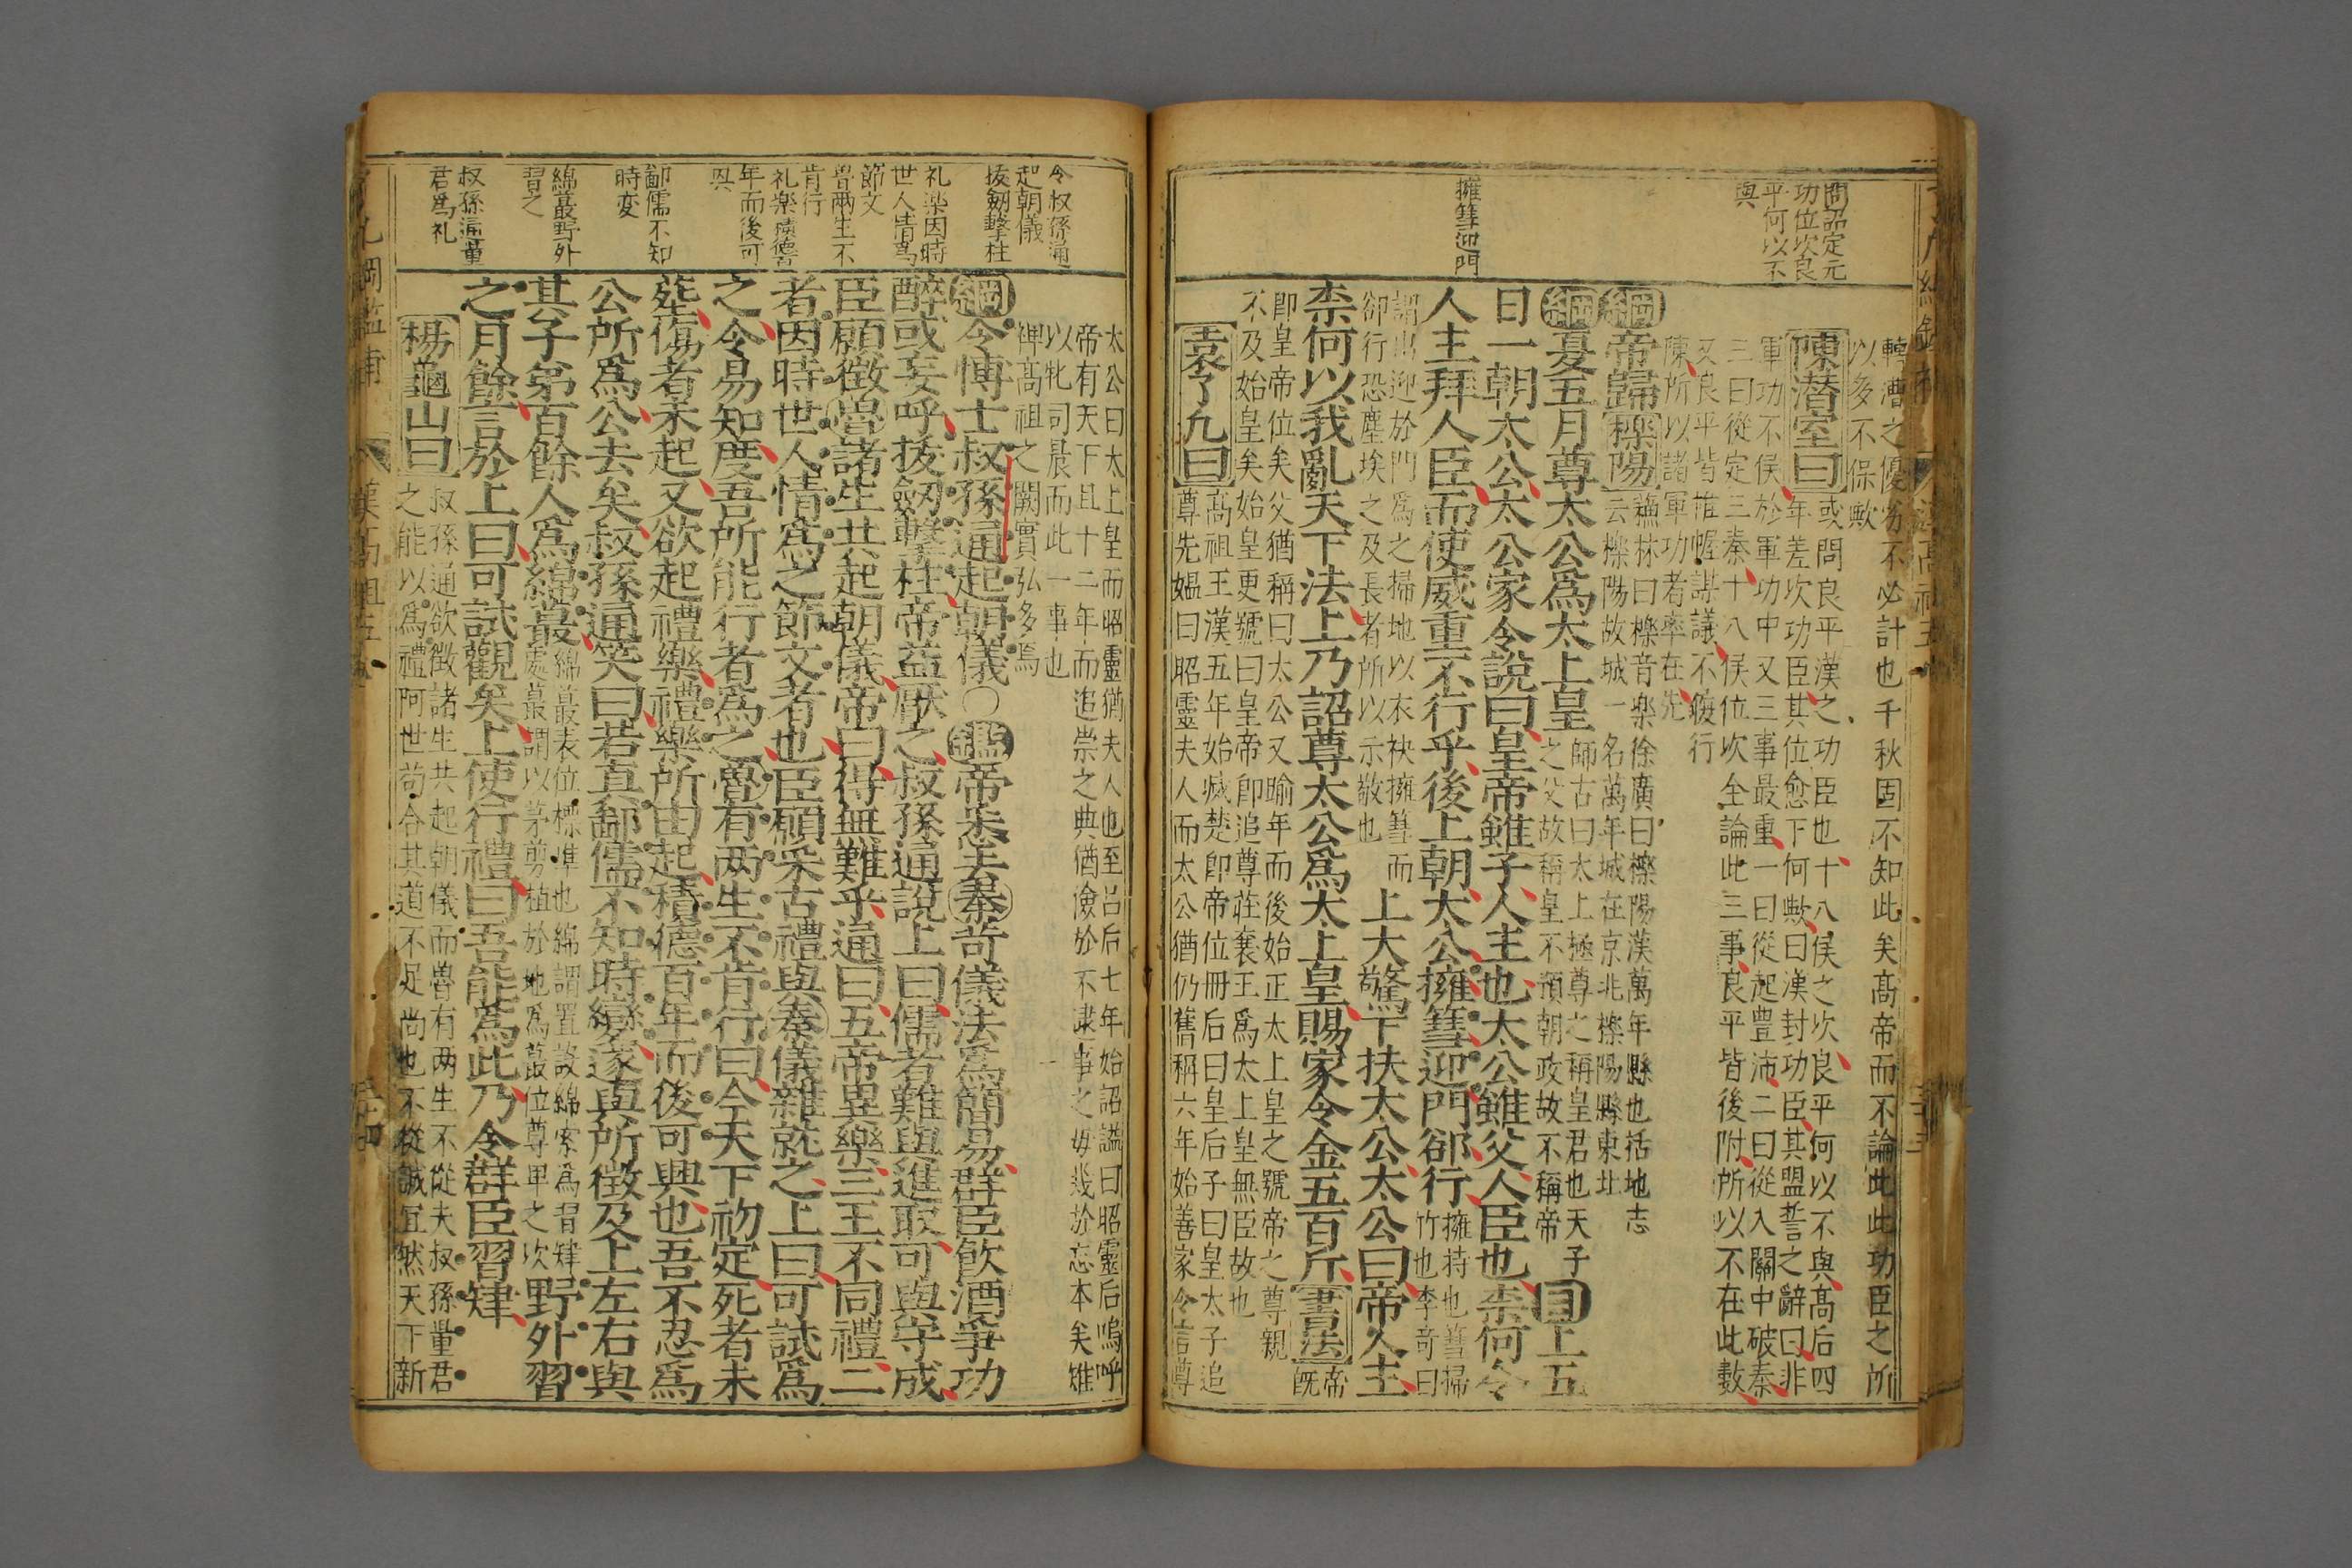 問詔定元
功位次良
平何以不
與
擁篲迎門
轉漕之優劣不必計也千秋固不知此矣高帝而不論此此功臣之所
以多不保歟
陳潛室曰
或問良平漢之功臣也十八侯之次良平何以不與高后四
年差次功臣其位愈下何歟曰漢封功臣其盟誓之辭曰非
軍功不侯於軍功中又三事最重一曰從起豐沛二曰從入關中破秦
三曰從定三秦十八侯位次全論此三事良平皆後附所以不在此數
又良平皆惟幄講議不履行
陳所以諸軍功者率在先
綱帝歸櫟陽
蘓林曰櫟音樂徐廣曰櫟陽漢萬年縣也括地志
云櫟陽故城一名萬年城在京兆櫟陽縣東北
綱夏五月尊太公爲太上皇
師古曰太上極尊之稱皇君也天子
之父故稱皇不預朝政故不稱帝
目上五
日一朝太公太公家令說曰皇帝雖子人主也太公雖父人臣也柰何令
人主拜人臣而使威重不行乎後上朝太公擁篲迎門郤行
擁持也篲掃
竹也李奇曰
謂出迎於門爲之掃地以衣袂擁篲而
郤行恐塵埃之及長者所以示敬也
上大驚下扶太公太公曰帝人主
柰何以我亂天下法上乃詔尊太公爲太上皇賜家令金五百斤
書法
帝
既
即皇帝位矣父猶稱曰太公又踰年而後始正太上皇之號帝之尊親
不及始皇矣始皇更號曰皇帝即追尊莊襄王爲太上皇無臣故也
袁了凡曰
高祖王漢五年始滅楚即帝位冊后曰皇后子曰皇太子追
尊先媼曰昭靈夫人而太公猶仍舊稱六年始善家令言尊
令叔孫通
起朝儀
拔劒擊柱
礼楽因時
世人情爲
節文
魯兩生不
肯行
礼楽積德百
年而後可
興
鄙儒不知
時変
綿蕞野外
習之
叔孫通量
君爲礼
太公曰太上皇而昭靈猶夫人也至呂后七年始詔謚曰昭靈后嗚呼
帝有天下且十二年而追崇之典猶儉於不逮事之母幾於忘本矣雖
以牝司晨而此一事也
俾高祖之闕實弘多焉
綱令博士叔孫通起朝儀○鑑帝悉去秦苛儀法爲簡易群臣飲酒爭功
醉或妄呼拔劒擊柱帝益厭之叔孫通說上曰儒者難與進取可與守成
臣願徵魯諸生共起朝儀帝曰得無難乎通曰五帝異樂三王不同禮二
者因時世人情爲之節文者也臣願采古禮與秦儀雜就之上曰可試爲
之令易知度吾所能行者爲之魯有两生不肯行曰今天下初定死者未
塟傷者未起又欲起禮樂禮樂所由起積德百年而後可興也吾不忍爲
公所爲公去矣叔孫通笑曰若真鄙儒不知時變遂與所徵及上左右與
其子弟百餘人爲綿蕞
綿蕞表位標準也綿謂置設綿索爲習肄
處蕞謂以茅剪植於地爲蕞位尊卑之次
野外習
之月餘言於上曰可試觀矣上使行禮曰吾能爲此乃令群臣習肄
楊龜山曰
叔孫通欲徵諸生共起朝儀而魯有两生不從夫叔孫量君
之能以爲禮阿世苟合其道不足尚也不從誠宜然天下新